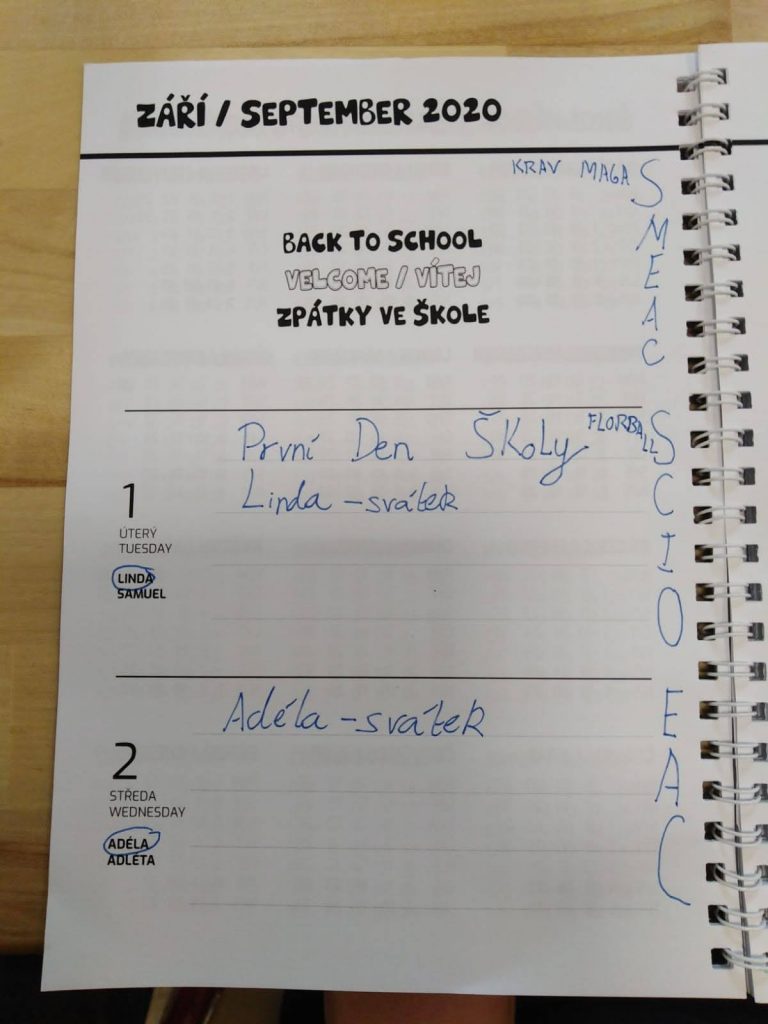 ZÁŘÍ / SEPTEMBER 2020
KRAV MAGA
SMEAC
BACK TO SCHOOL
VELCOME / VÍTEJ
ZPÁTKY VE ŠKOLE
První Den Školy
FLORBALL
SCIO
Linda - svátek
1
ÚTERÝ
TUESDAY
LINDA
SAMUEL
Adéla - svátek
EAC
2
STŘEDA
WEDNESDAY
ADÉLA
ADLÉTA